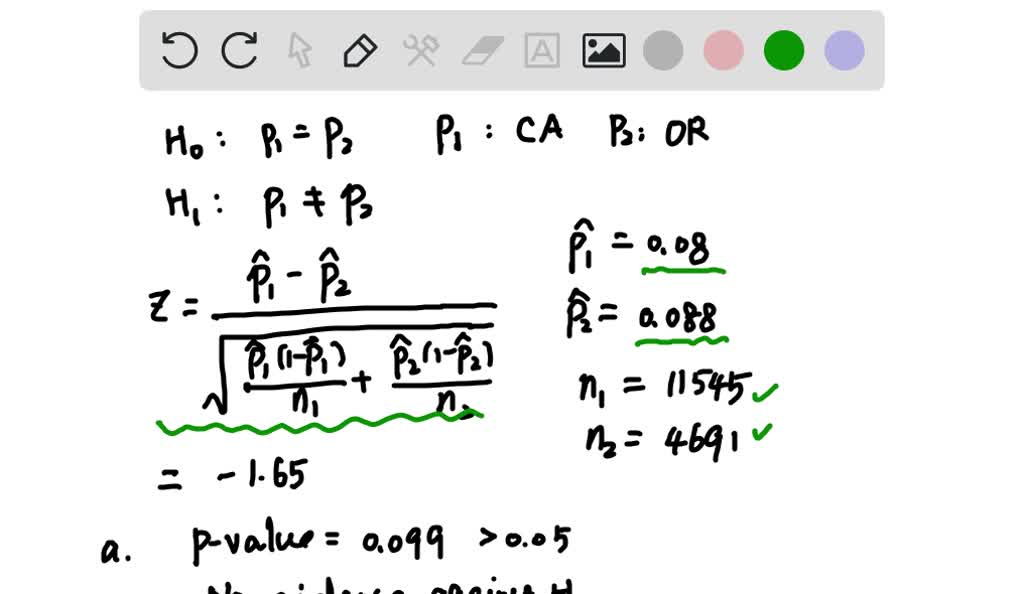 H₀ : p₁ = p₂ p₁ : CA p₂: OR
H₁ : p₁ ≠ p₂
p̂₁ = 0.08
Z = (p̂₁ - p̂₂) / √(p̂₁(1-p̂₁)/n₁ + p̂₂(1-p̂₂)/n₂)
p̂₂ = 0.088
n₁ = 11545 ✓
n₂ = 4691 ✓
= -1.65
a. p-value = 0.099 > 0.05